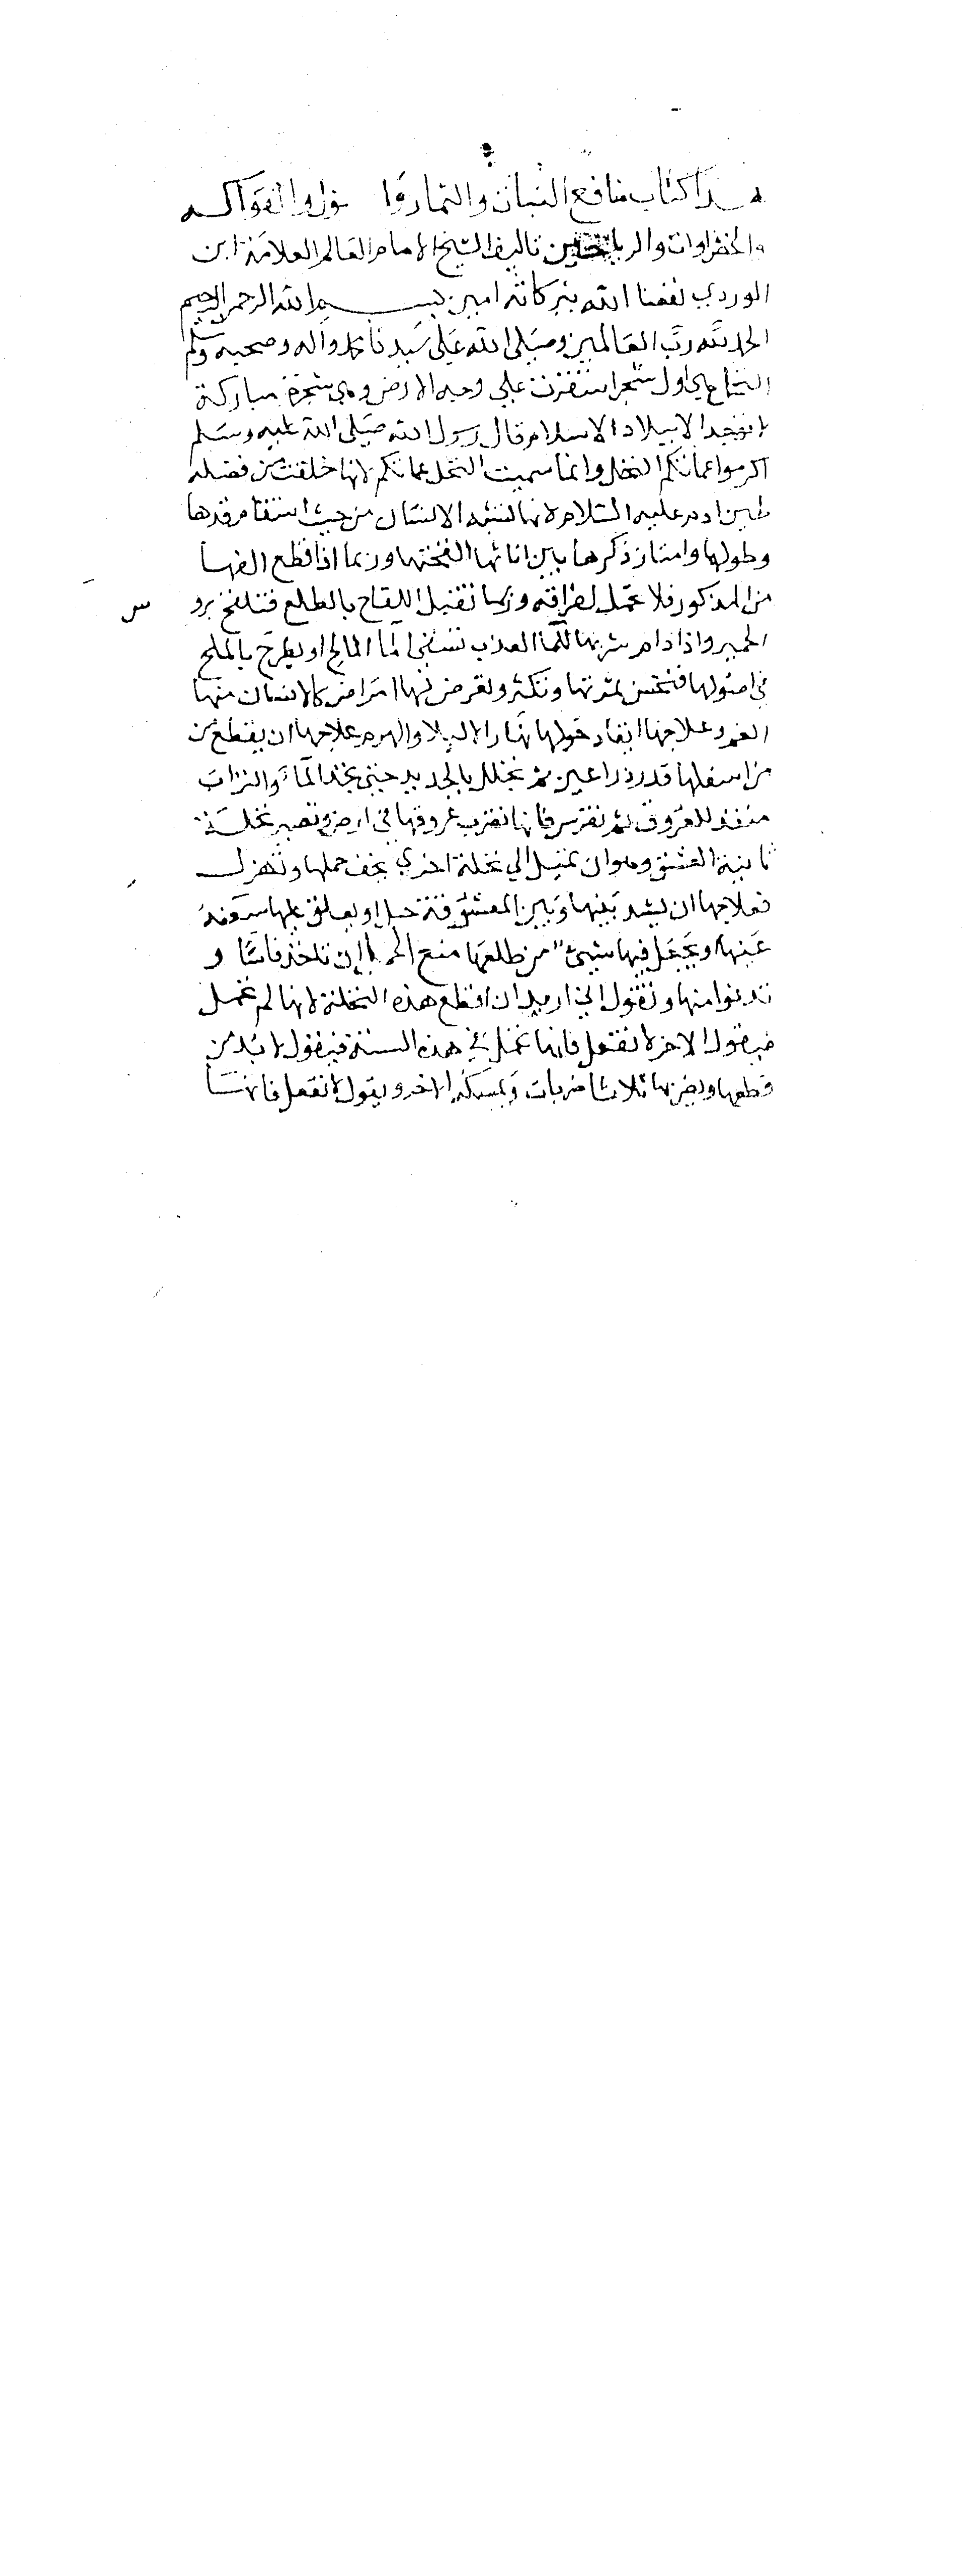 هذا كتاب منافع النبات والثمار والبقول والفواكه
والخضراوات والرياحين تاليف الشيخ الامام العالم العلامة ابن
الوردي نفعنا الله ببركاته امين بسم الله الرحمن الرحيم
الحمد لله رب العالمين وصلى الله على سيدنا محمد واله وصحبه وسلم
النخل هي اول شجر استقرت علي وجه الارض وهي شجرة مباركة
لا توجد الا ببلاد الاسلام قال رسول الله صلى الله عليه وسلم
اكرموا عماتكم النخل وانما سميت النخل عماتكم لانها خلقت من فضلة
طين ادم عليه السلام لانها تشبه الانسان من حيث استقام قدها
وطولها وامتاز ذكرها بين اناثها الفختها وربما اذا قطع الفها
من الذكور فلا تحمل لفراقه وربما تقبل اللقاح بالطلع فتلقح برو
الحمير واذا دام شربها للما العذب تسقى الما المالح او يطرح بالملح
في اصولها فتحسن ثمرتها وتكثر وتعرض لها امراض كالانسان منها
الغم وعلاجها ايقاد حولها نارا لليلا والهرم علاجها ان يقطع من
من اسفلها قدر ذراعين ثم تخلل بالحديد حتى يجد الماء والتراب
منفذ للعروق ثم تغرس فانها تضرب عروقها في ارض وتصير نخلة
ثانية العشق وهو ان تميل الي نخلة اخري يخف حملها وتهزل
فعلاجها ان يشد بينها وبين المعشوقة حبل او يعلق عليها سعفة
عنها او يجعل فيها شيئ من طلعها منع الحمل ان تاخذ فاسا و
تدنوا منها وتقول اني اريد ان اقطع هذه النخلة لانها لم تحمل
فيقول الاخر لا تفعل فانها تحمل في هذه السنة فيقول لا بد من
قطعها ويضربها ثلاثا ضربات ويمسكه الاخر ويقول لا تفعل فانها